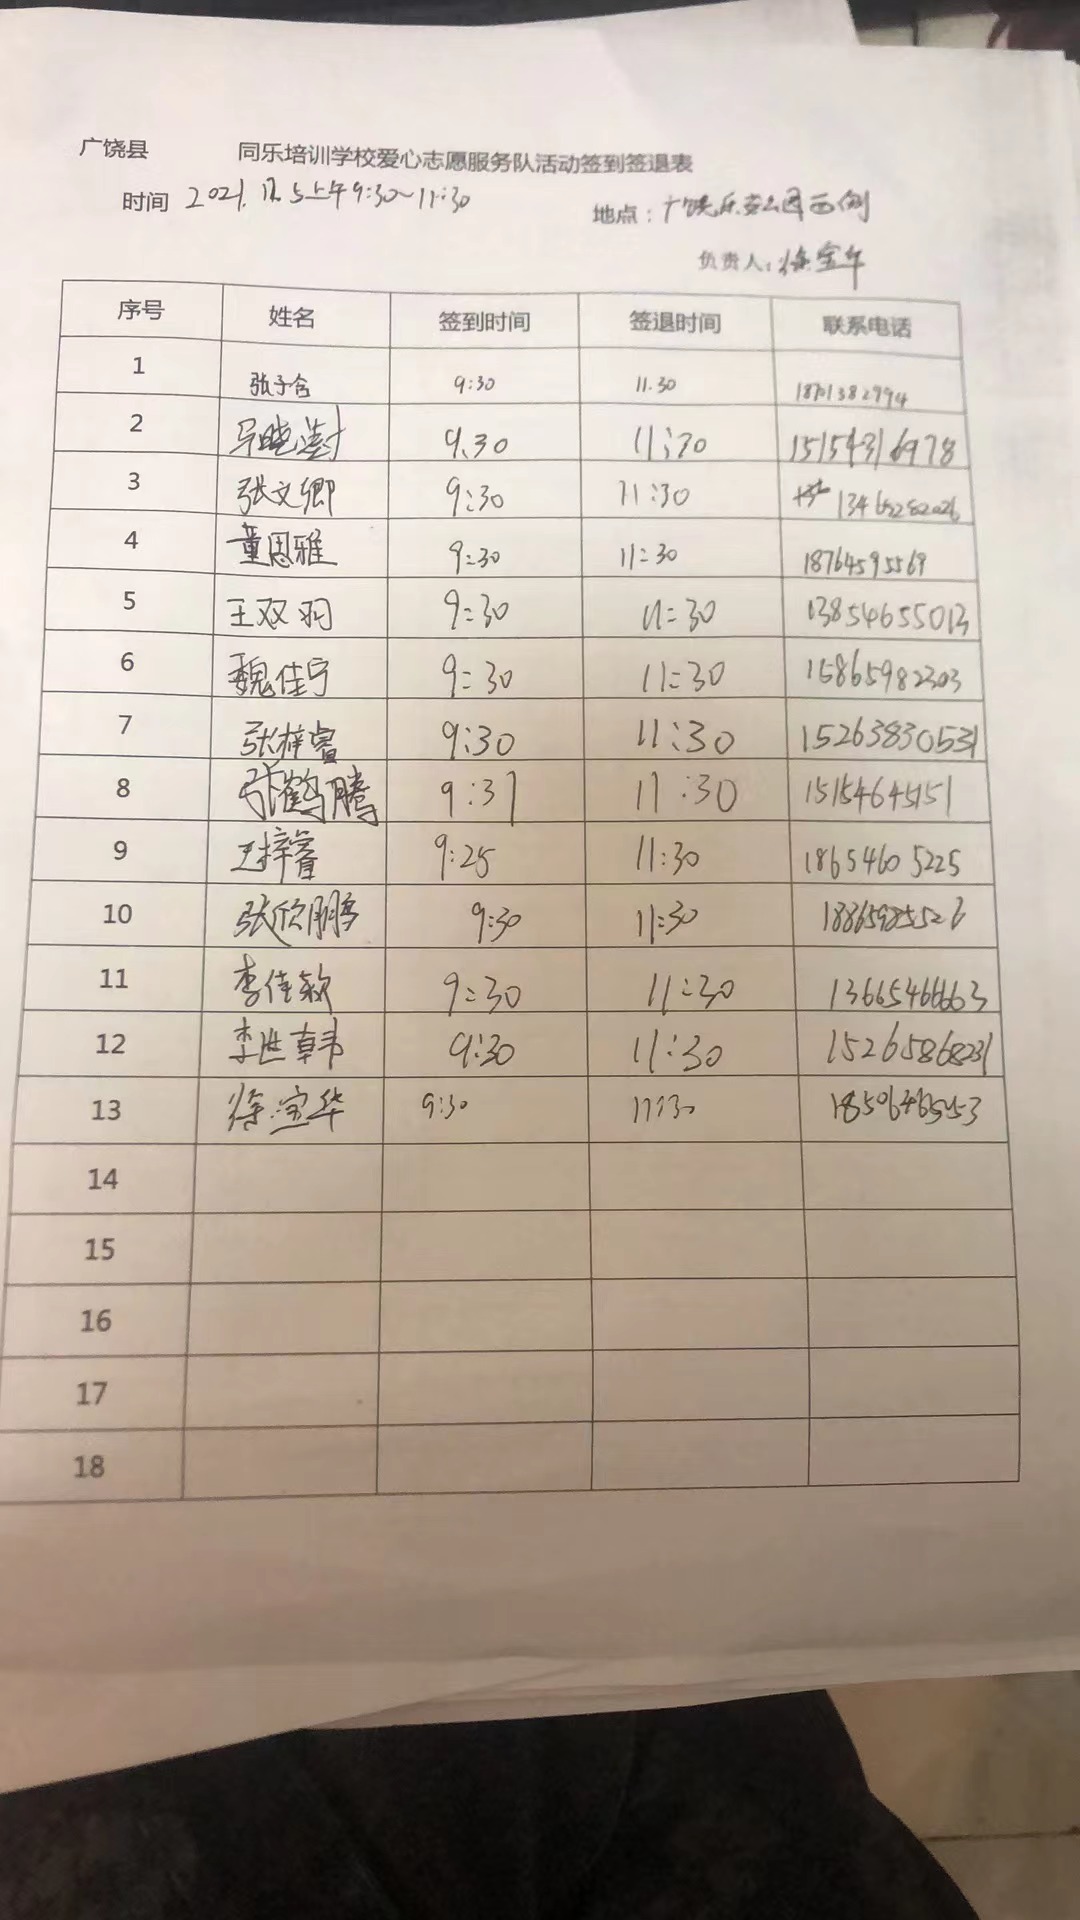 广饶县 同乐培训学校爱心志愿服务队活动签到签退表
时间 2021.12.5上午9:30~11:30 地点：广饶乐安公园西侧
负责人：徐宝华
序号 姓名 签到时间 签退时间 联系电话
1 张子含 9:30 11.30 18701382994
2 马晓澍 9.30 11:30 15154316978
3 张文卿 9:30 11:30 13465282026
4 童思雅 9:30 11:30 18764595569
5 王双羽 9:30 11:30 13854655013
6 魏佳宁 9:30 11:30 15865982303
7 张梓睿 9:30 11:30 15263830531
8 张鹤腾 9:31 11:30 15154645151
9 王梓睿 9:25 11:30 18654605225
10 张欣鹏 9:30 11:30 18865985526
11 李佳欣 9:30 11:30 13665466663
12 李世韩 9:30 11:30 15265868231
13 徐宝华 9:30 11:30
14
15
16
17
18